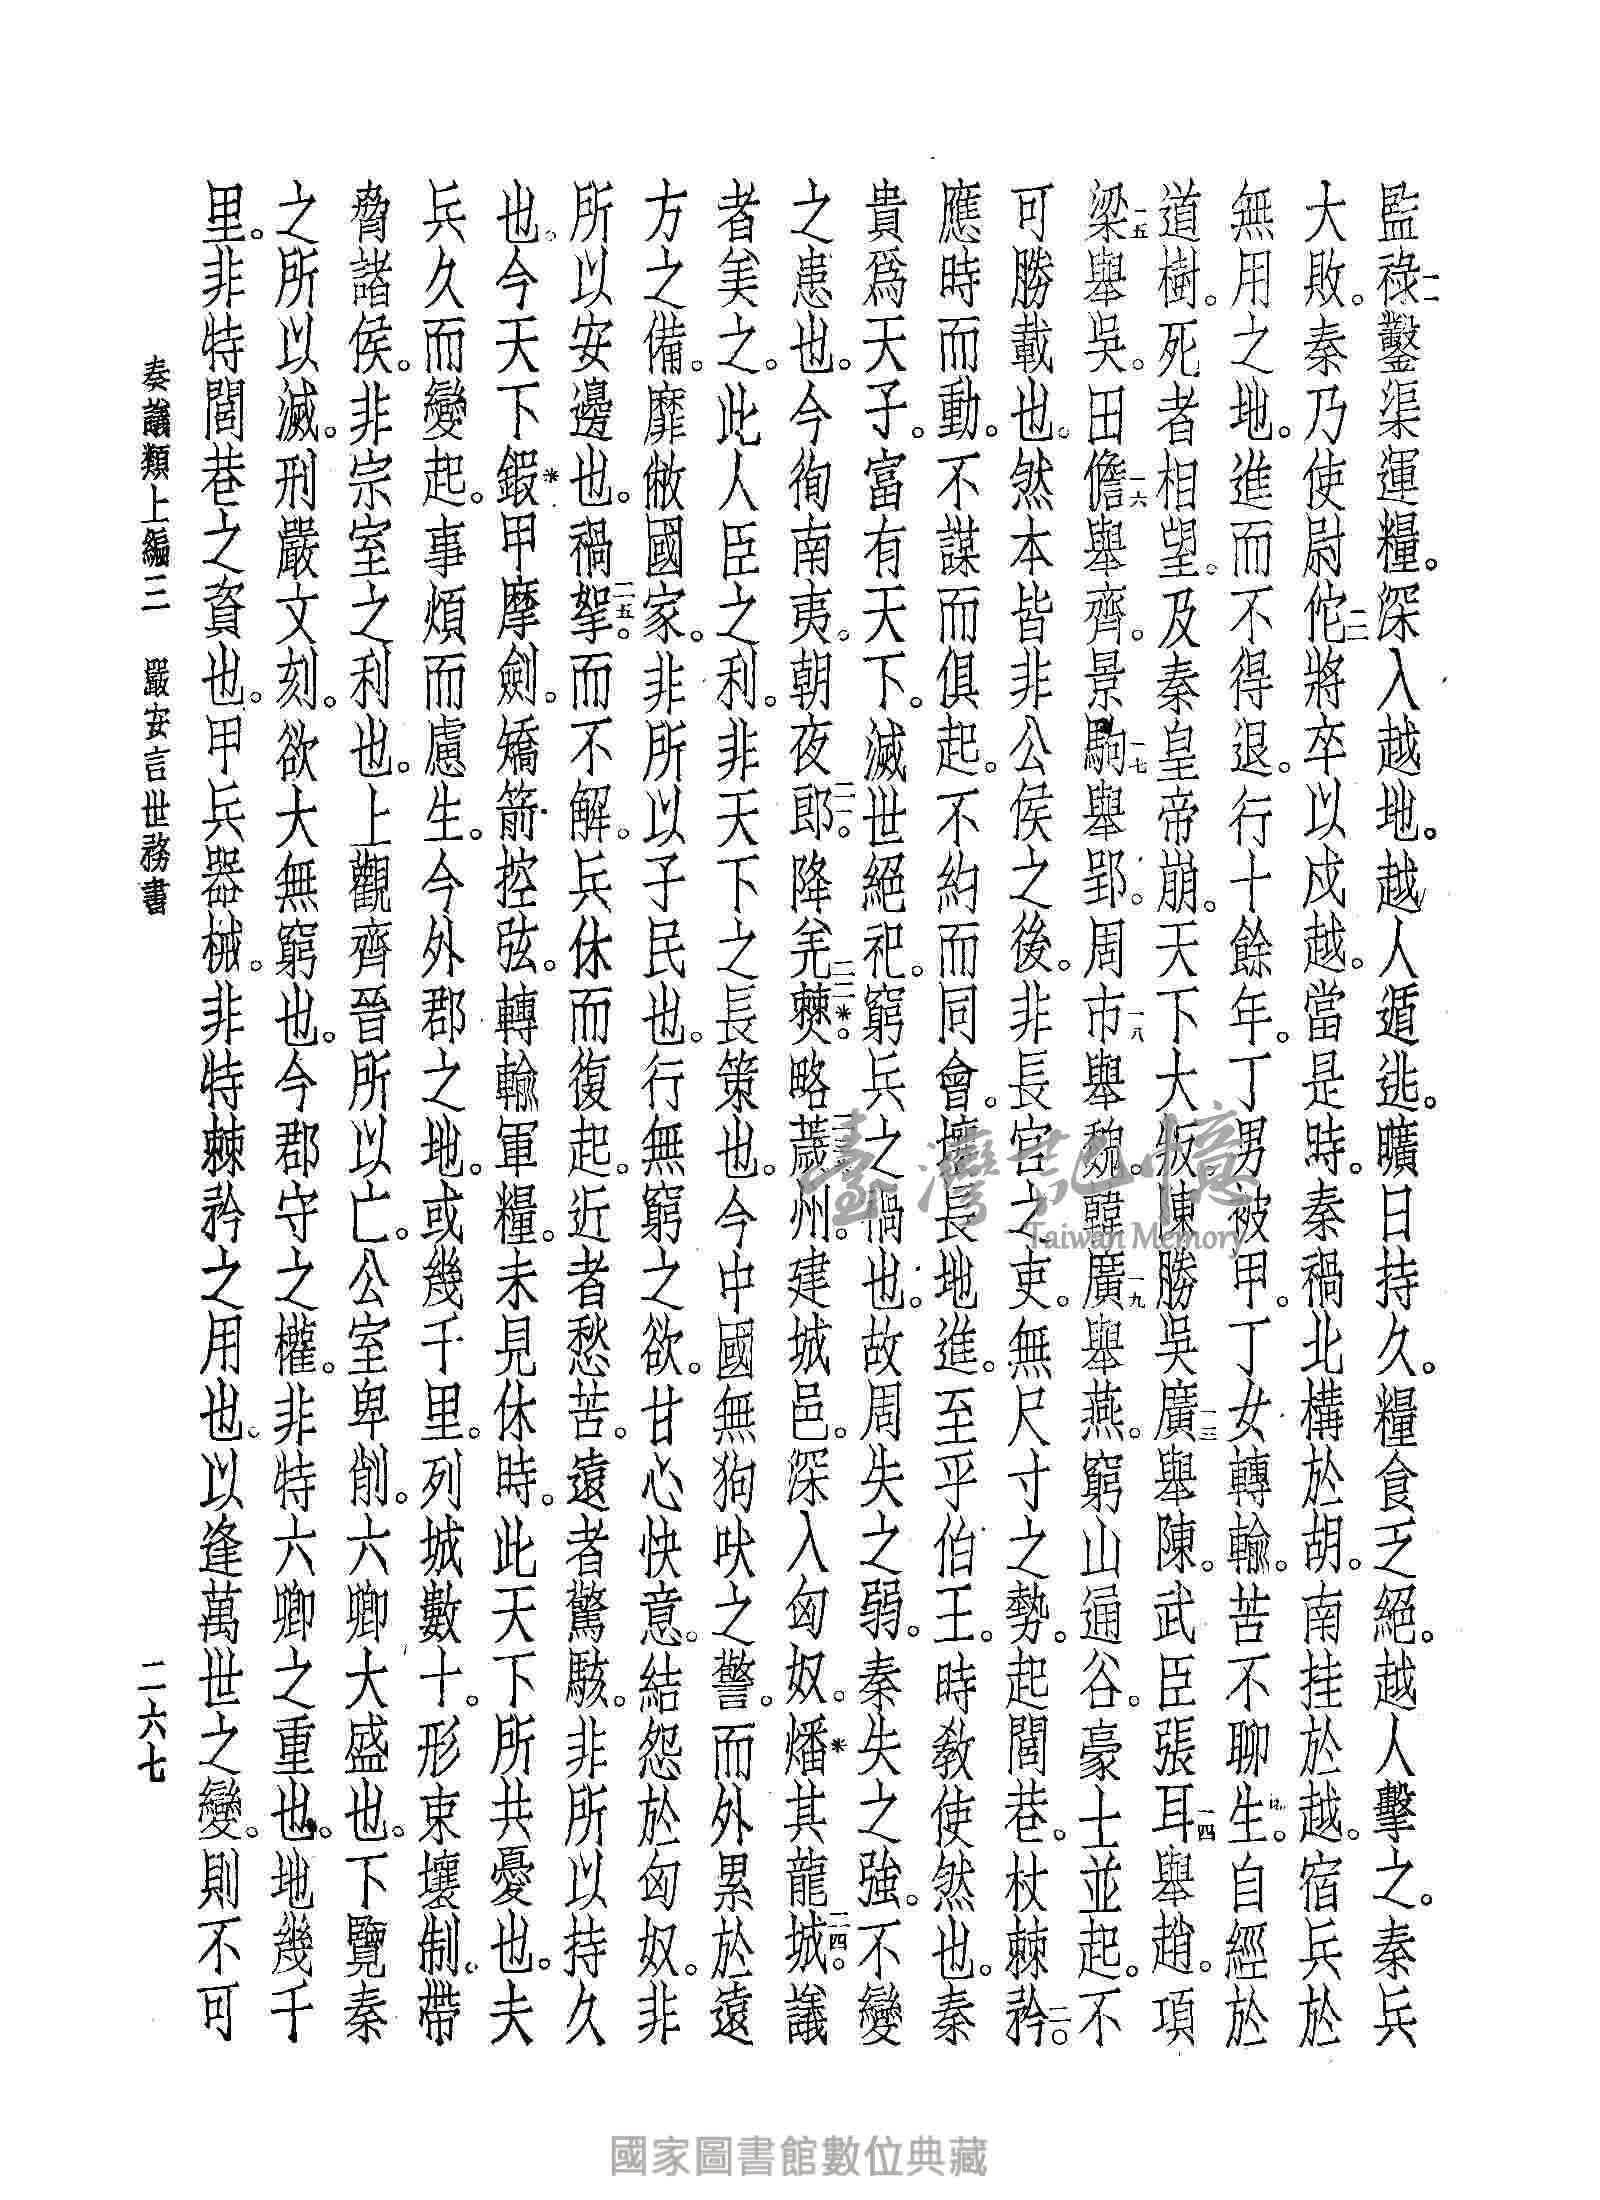 監祿一一鑿渠運糧。深入越地。越人遁逃。曠日持久。糧食乏絕。越人擊之。秦兵
大敗。秦乃使尉佗一二將卒以戍越。當是時。秦禍北構於胡。南挂於越。宿兵於
無用之地。進而不得退。行十餘年。丁男被甲。丁女轉輸。苦不聊生。自經於
道樹。死者相望。及秦皇帝崩。天下大叛。陳勝吳廣一三舉陳。武臣張耳一四舉趙。項
梁一五舉吳。田儋一六舉齊。景駒一七舉郢。周市一八舉魏。韓廣一九舉燕。窮山通谷。豪士並起。不
可勝載也。然本皆非公侯之後。非長官之吏。無尺寸之勢。起閭巷。杖棘矜二〇。
應時而動。不謀而俱起。不約而同會。壤長地進。至乎伯王。時敎使然也。秦
貴爲天子。富有天下。滅世絕祀。窮兵之禍也。故周失之弱。秦失之強。不變
之患也。今徇南夷。朝夜郎二一。降羌僰二二*。略薉二三州。建城邑。深入匈奴。燔*其龍城二四。議
者美之。此人臣之利。非天下之長策也。今中國無狗吠之警。而外累於遠
方之備。靡敝國家。非所以子民也。行無窮之欲。甘心快意。結怨於匈奴。非
所以安邊也。禍挐二五。而不解。兵休而復起。近者愁苦。遠者驚駭。非所以持久
也。今天下鍜*甲摩劍。矯箭控弦。轉輸軍糧。未見休時。此天下所共憂也。夫
兵久而變起。事煩而慮生。今外郡之地。或幾千里。列城數十。形束壤制。帶
脅諸侯。非宗室之利也。上觀齊晉所以亡。公室卑削。六卿大盛也。下覽秦
之所以滅。刑嚴文刻。欲大無窮也。今郡守之權。非特六卿之重也。地幾千
里。非特閭巷之資也。甲兵器械。非特棘矜之用也。以逢萬世之變。則不可
奏議類上編三　嚴安言世務書
二六七
臺灣記憶
Taiwan Memory
國家圖書館數位典藏